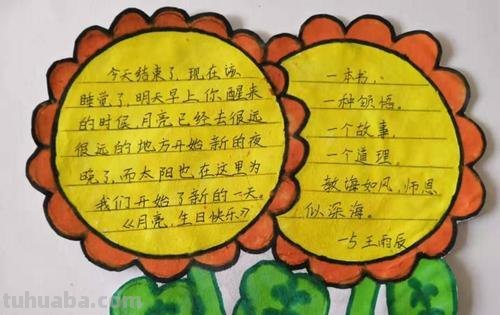 今天结束了,现在该
睡觉了,明天早上,你醒来
的时候,月亮已经去很远
很远的地方开始新的夜
晚了,而太阳也在这里为
我们开始了新的一天。
《月亮,生日快乐》
一本书,
一种领悟。
一个故事,
一个道理。
教诲如风,师恩
似深海。
王雨辰
tuhuaba.com